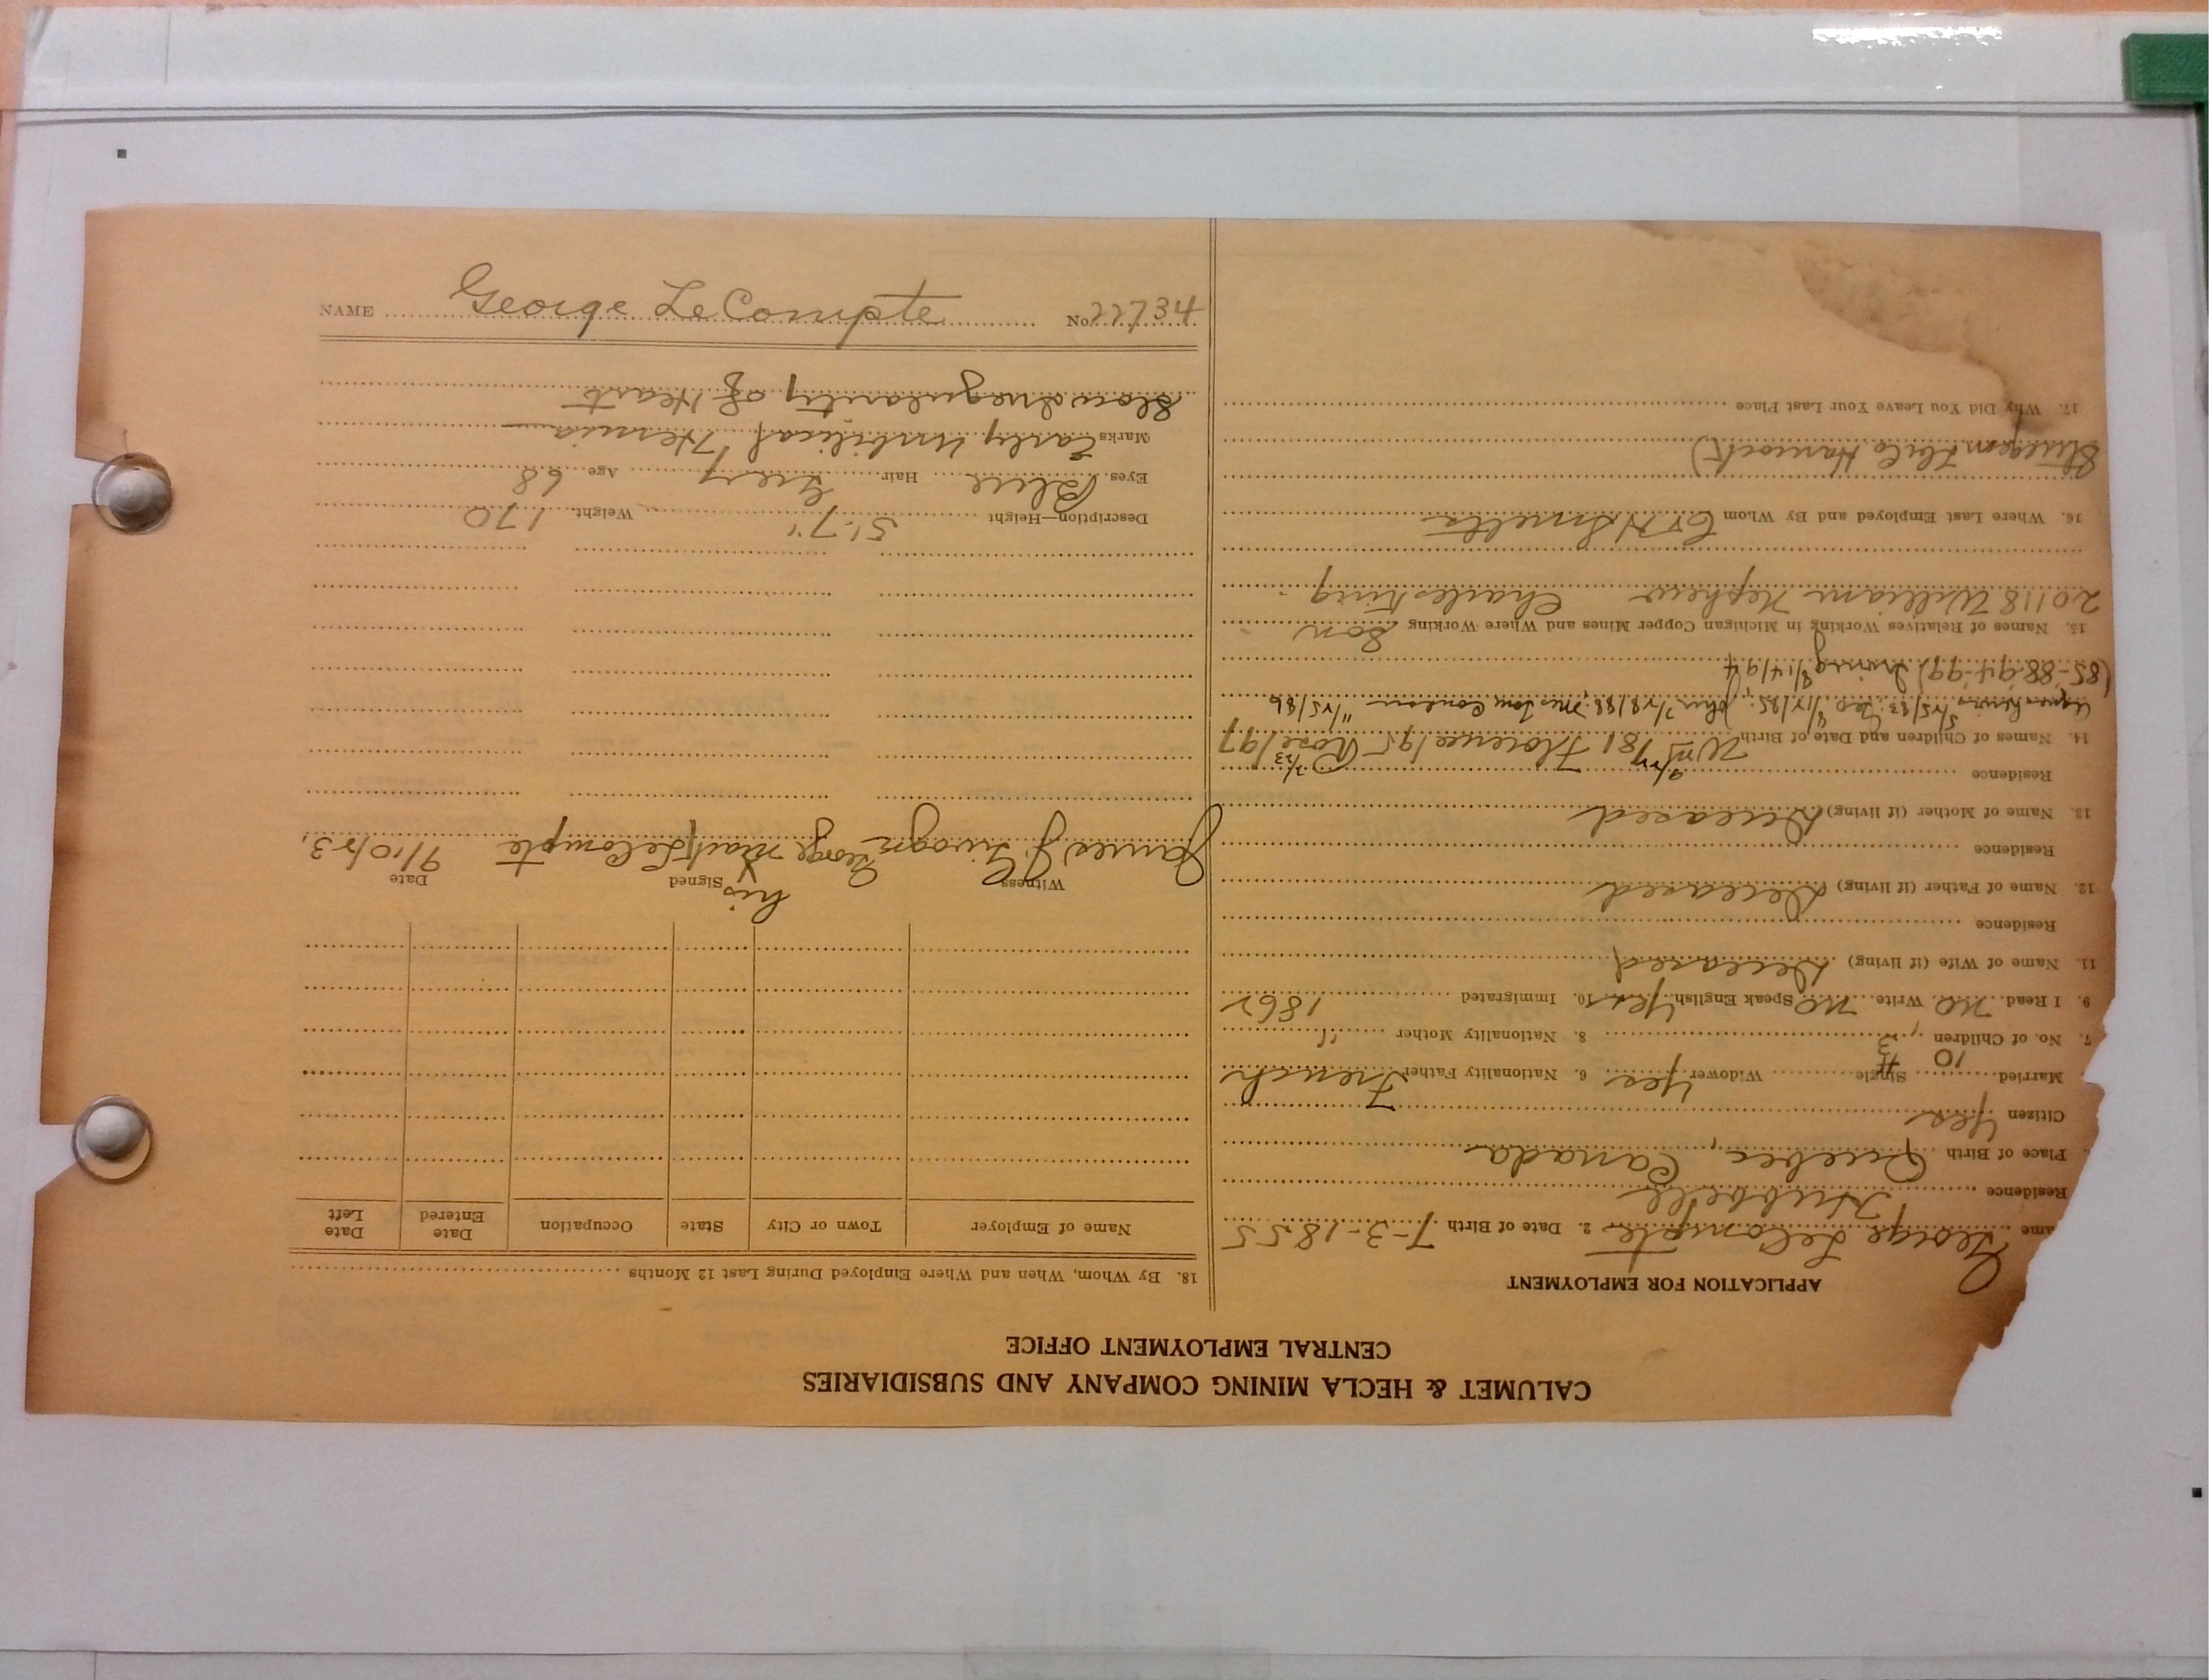 CALUMET & HECLA MINING COMPANY AND SUBSIDIARIES
CENTRAL EMPLOYMENT OFFICE
APPLICATION FOR EMPLOYMENT
ame George LeCompte 2. Date of Birth 7-3-1855
Residence Hubbell
Place of Birth Quebec, Canada
Citizen Yes
Married Single Widower Yes 6. Nationality Father French
7. No. of Children 10 8. Nationality Mother "
9. I Read No Write No Speak English Yes 10. Immigrated 1862
11. Name of Wife (if living) Deceased
Residence
12. Name of Father (if living) Deceased
Residence
13. Name of Mother (if living) Deceased
Residence
14. Names of Children and Date of Birth Wm /81 Florence /95 Rose /97
5/25/83 Geo. John 7/28/88 Mrs Tom 11/25/86
(85-88-94-99) Irving 8/14/94
15. Names of Relatives Working in Michigan Copper Mines and Where Working Son
20118 William Nephew Charles King
16. Where Last Employed and By Whom C & H Smelter
Hancock)
17. Why Did You Leave Your Last Place
18. By Whom, When and Where Employed During Last 12 Months
Name of Employer Town or City State Occupation Date Entered Date Left
Witness Signed Date
his
James J. George mark LeCompte 9/10/23
X
Description—Height 5'-7" Weight 170
Eyes Blue Hair Grey Age 68
Marks Early Umbilical Hernia
Slow Irregularity of Heart
NAME George LeCompte No. 22734